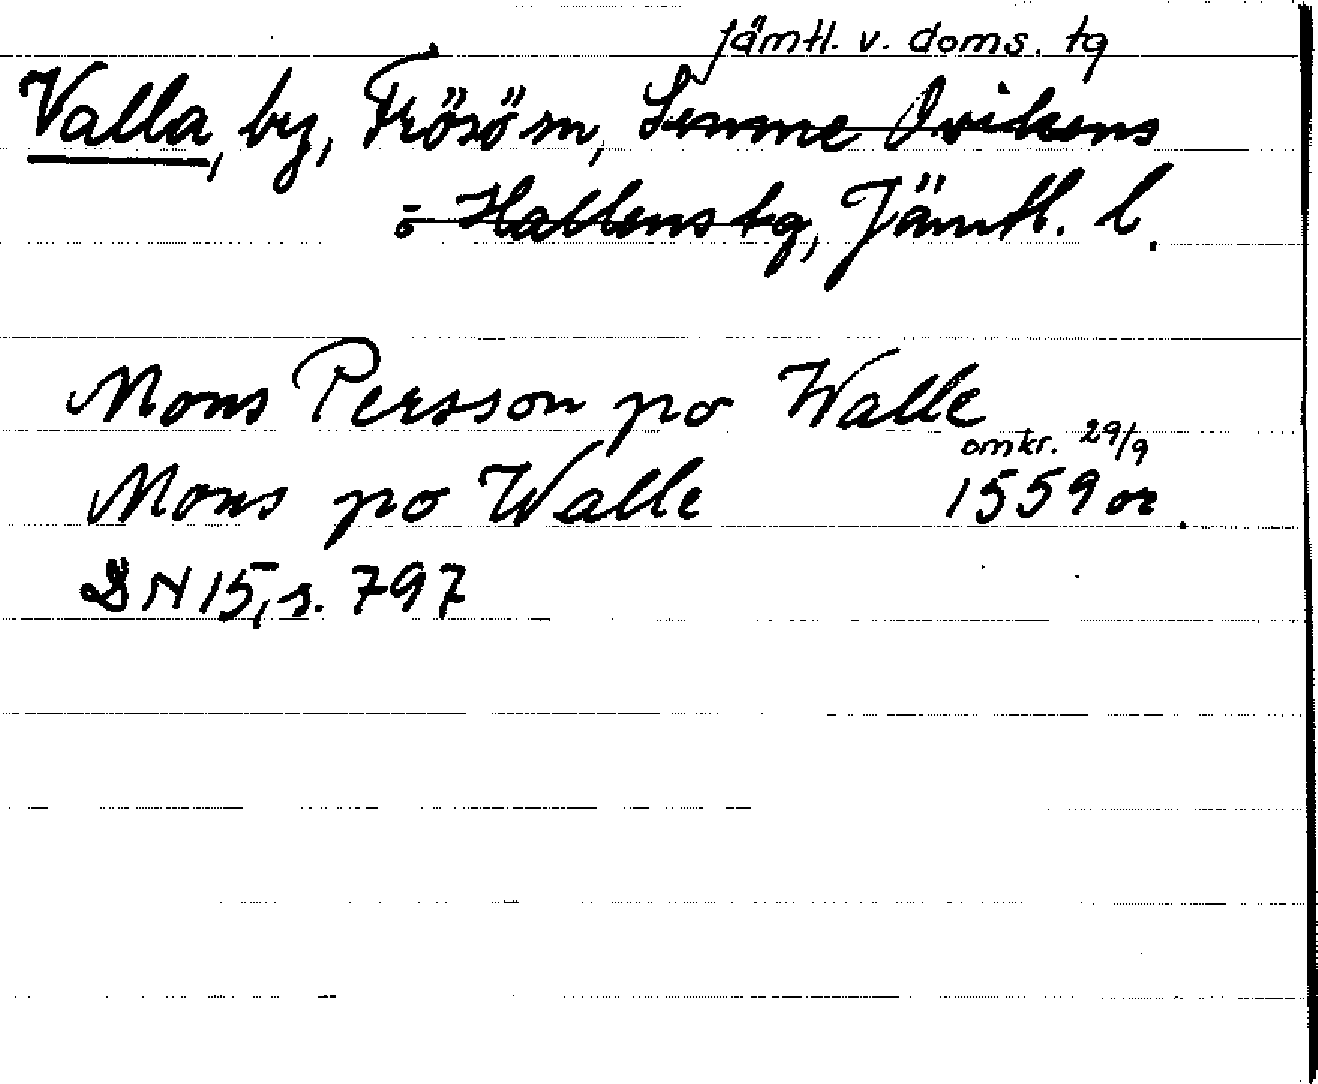 Jämtl. v. doms. tg
Valla, by, Frösö sn, Sunne Ovikens
o. Hallens tg, Jämtl. l.
Mons Persson po Walle
omkr. 29/9
Mons po Walle 1559 or.
DN 15, s. 797